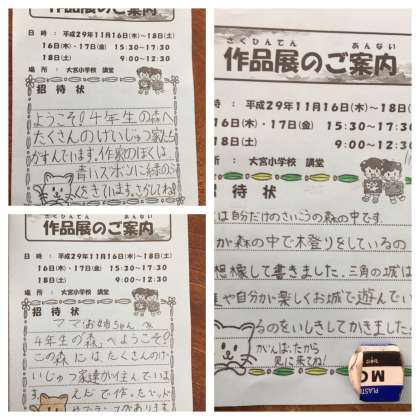 作品展のご案内
日時：平成29年11月16日(木)～18日(土)
16日(木)・17日(金) 15:30~17:30
18日(土) 9:00~12:30
場所：大宮小学校 講堂
招待状
ようこそ！4年生の森へ
たくさんのげいじゅつ家たち
がすんでいます。作家のぼくは、
青いズボンに緑の
さくひんてん あんない
作品展のご案内
時：平成29年11月16日(木)～18日
16日(木)・17日(金) 15:30~17:
18日(土) 9:00~12:
所：大宮小学校 講堂
待状
は自分だけのさいこうの森の中です。
が森の中で木登りをしているの
想像して書きました。三角の城は
や自分が楽しくお城で遊んでい
るのをいしきしてかきました。
がんばったから
見に来てね！
PLASTIC
MO
さくひんてん あんない
作品展のご案内
日時：平成29年11月16日(木)～18日(土)
16日(木)・17日(金) 15:30~17:30
18日(土) 9:00~12:30
場所：大宮小学校 講堂
招待状
ママ お姉ちゃん へ
4年生の「森」へようこそ！
この森にはたくさんのげ
いじゅつ家達が住んでいま
す。えだで作った